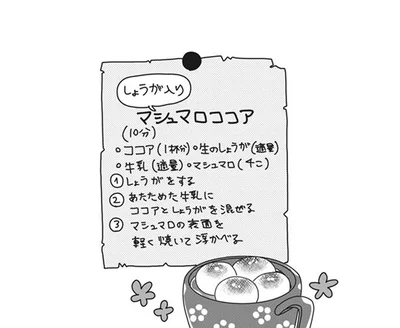 しょうが入り
マシュマロココア
(10分)
◦ココア(1杯分)◦生のしょうが(適量)
◦牛乳(適量)◦マシュマロ(4こ)
①しょうがをする
②あたためた牛乳に
ココアとしょうがを混ぜる
③マシュマロの表面を
軽く焼いて浮かべる